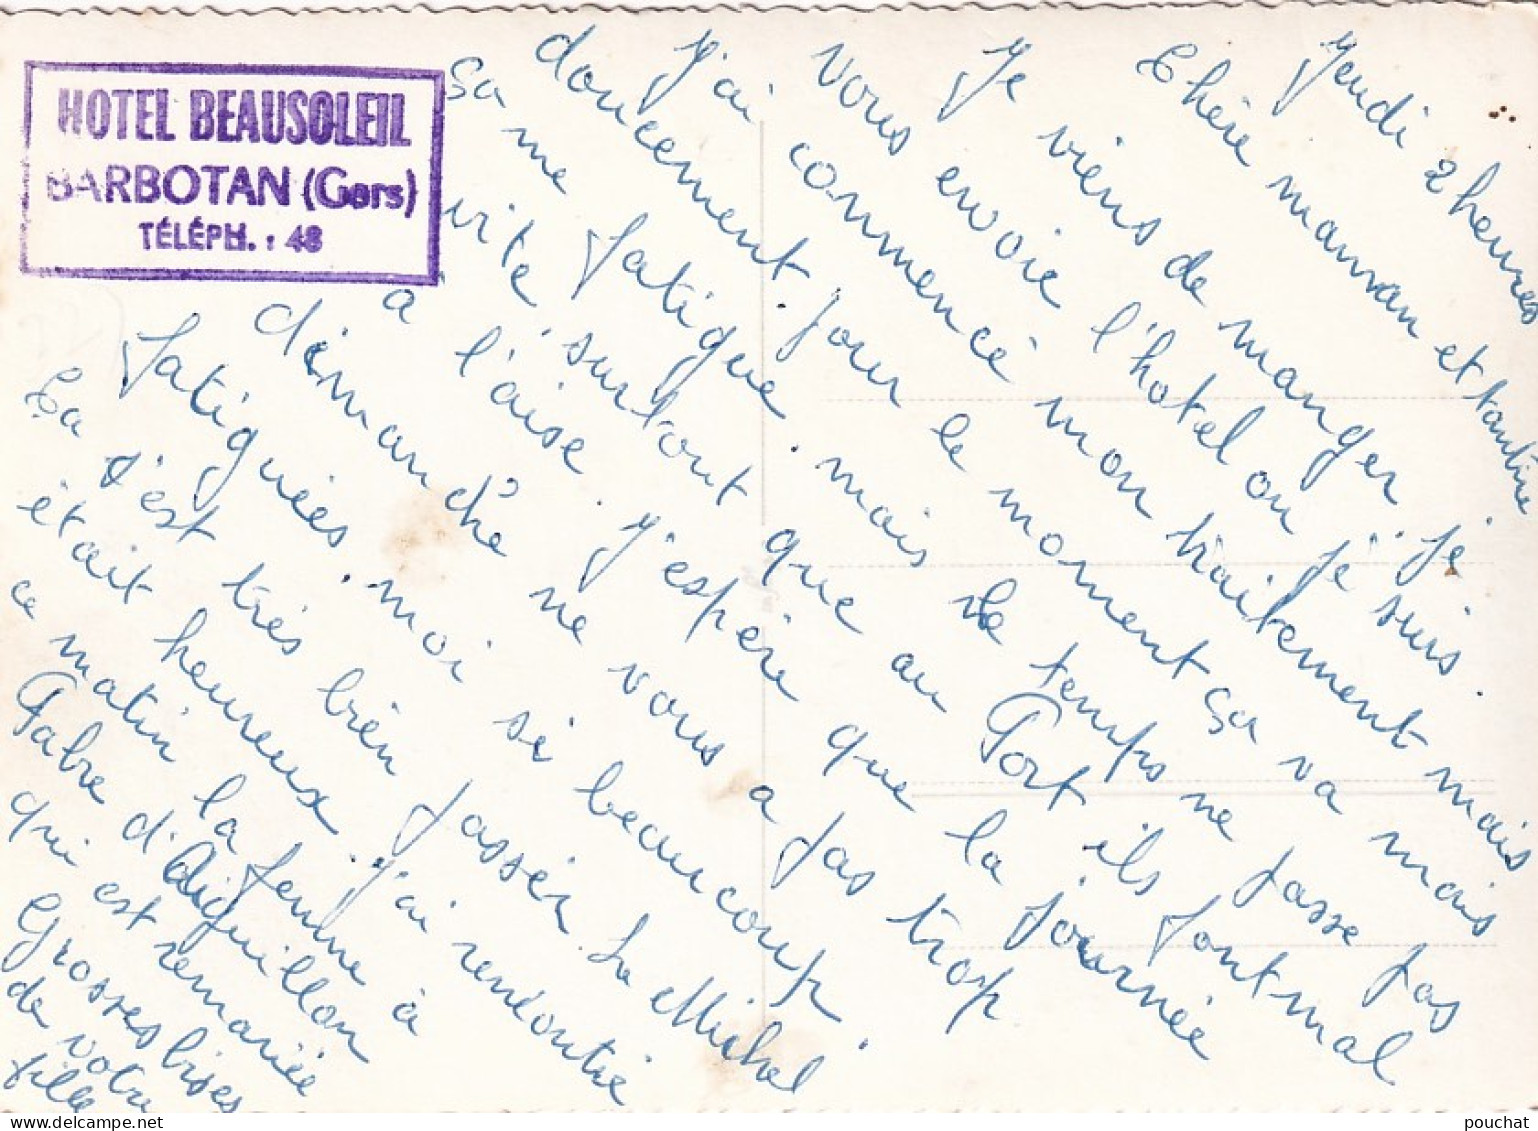 HOTEL BEAUSOLEIL
BARBOTAN (Gers)
TÉLÉPH. : 48
Jeudi 2 heures
Chère maman et tantine
Je viens de manger, je
vous envoie l'hotel ou je suis.
J'ai commencé mon traitement mais
doucement pour le moment ça va mais
ça me fatigue. mais le temps ne passe pas
vite surtout que au Port ils font mal
à l'aise. J'espère que la journée
dimanche ne vous a pas trop
fatiguées, moi si beaucoup.
Ça s'est très bien passer. Le Michel
était heureux. J'ai rencontré
ce matin la femme à
Fabre d'Aiguillon
qui est remariée
Grosses bises
de votre
fille
pouchat